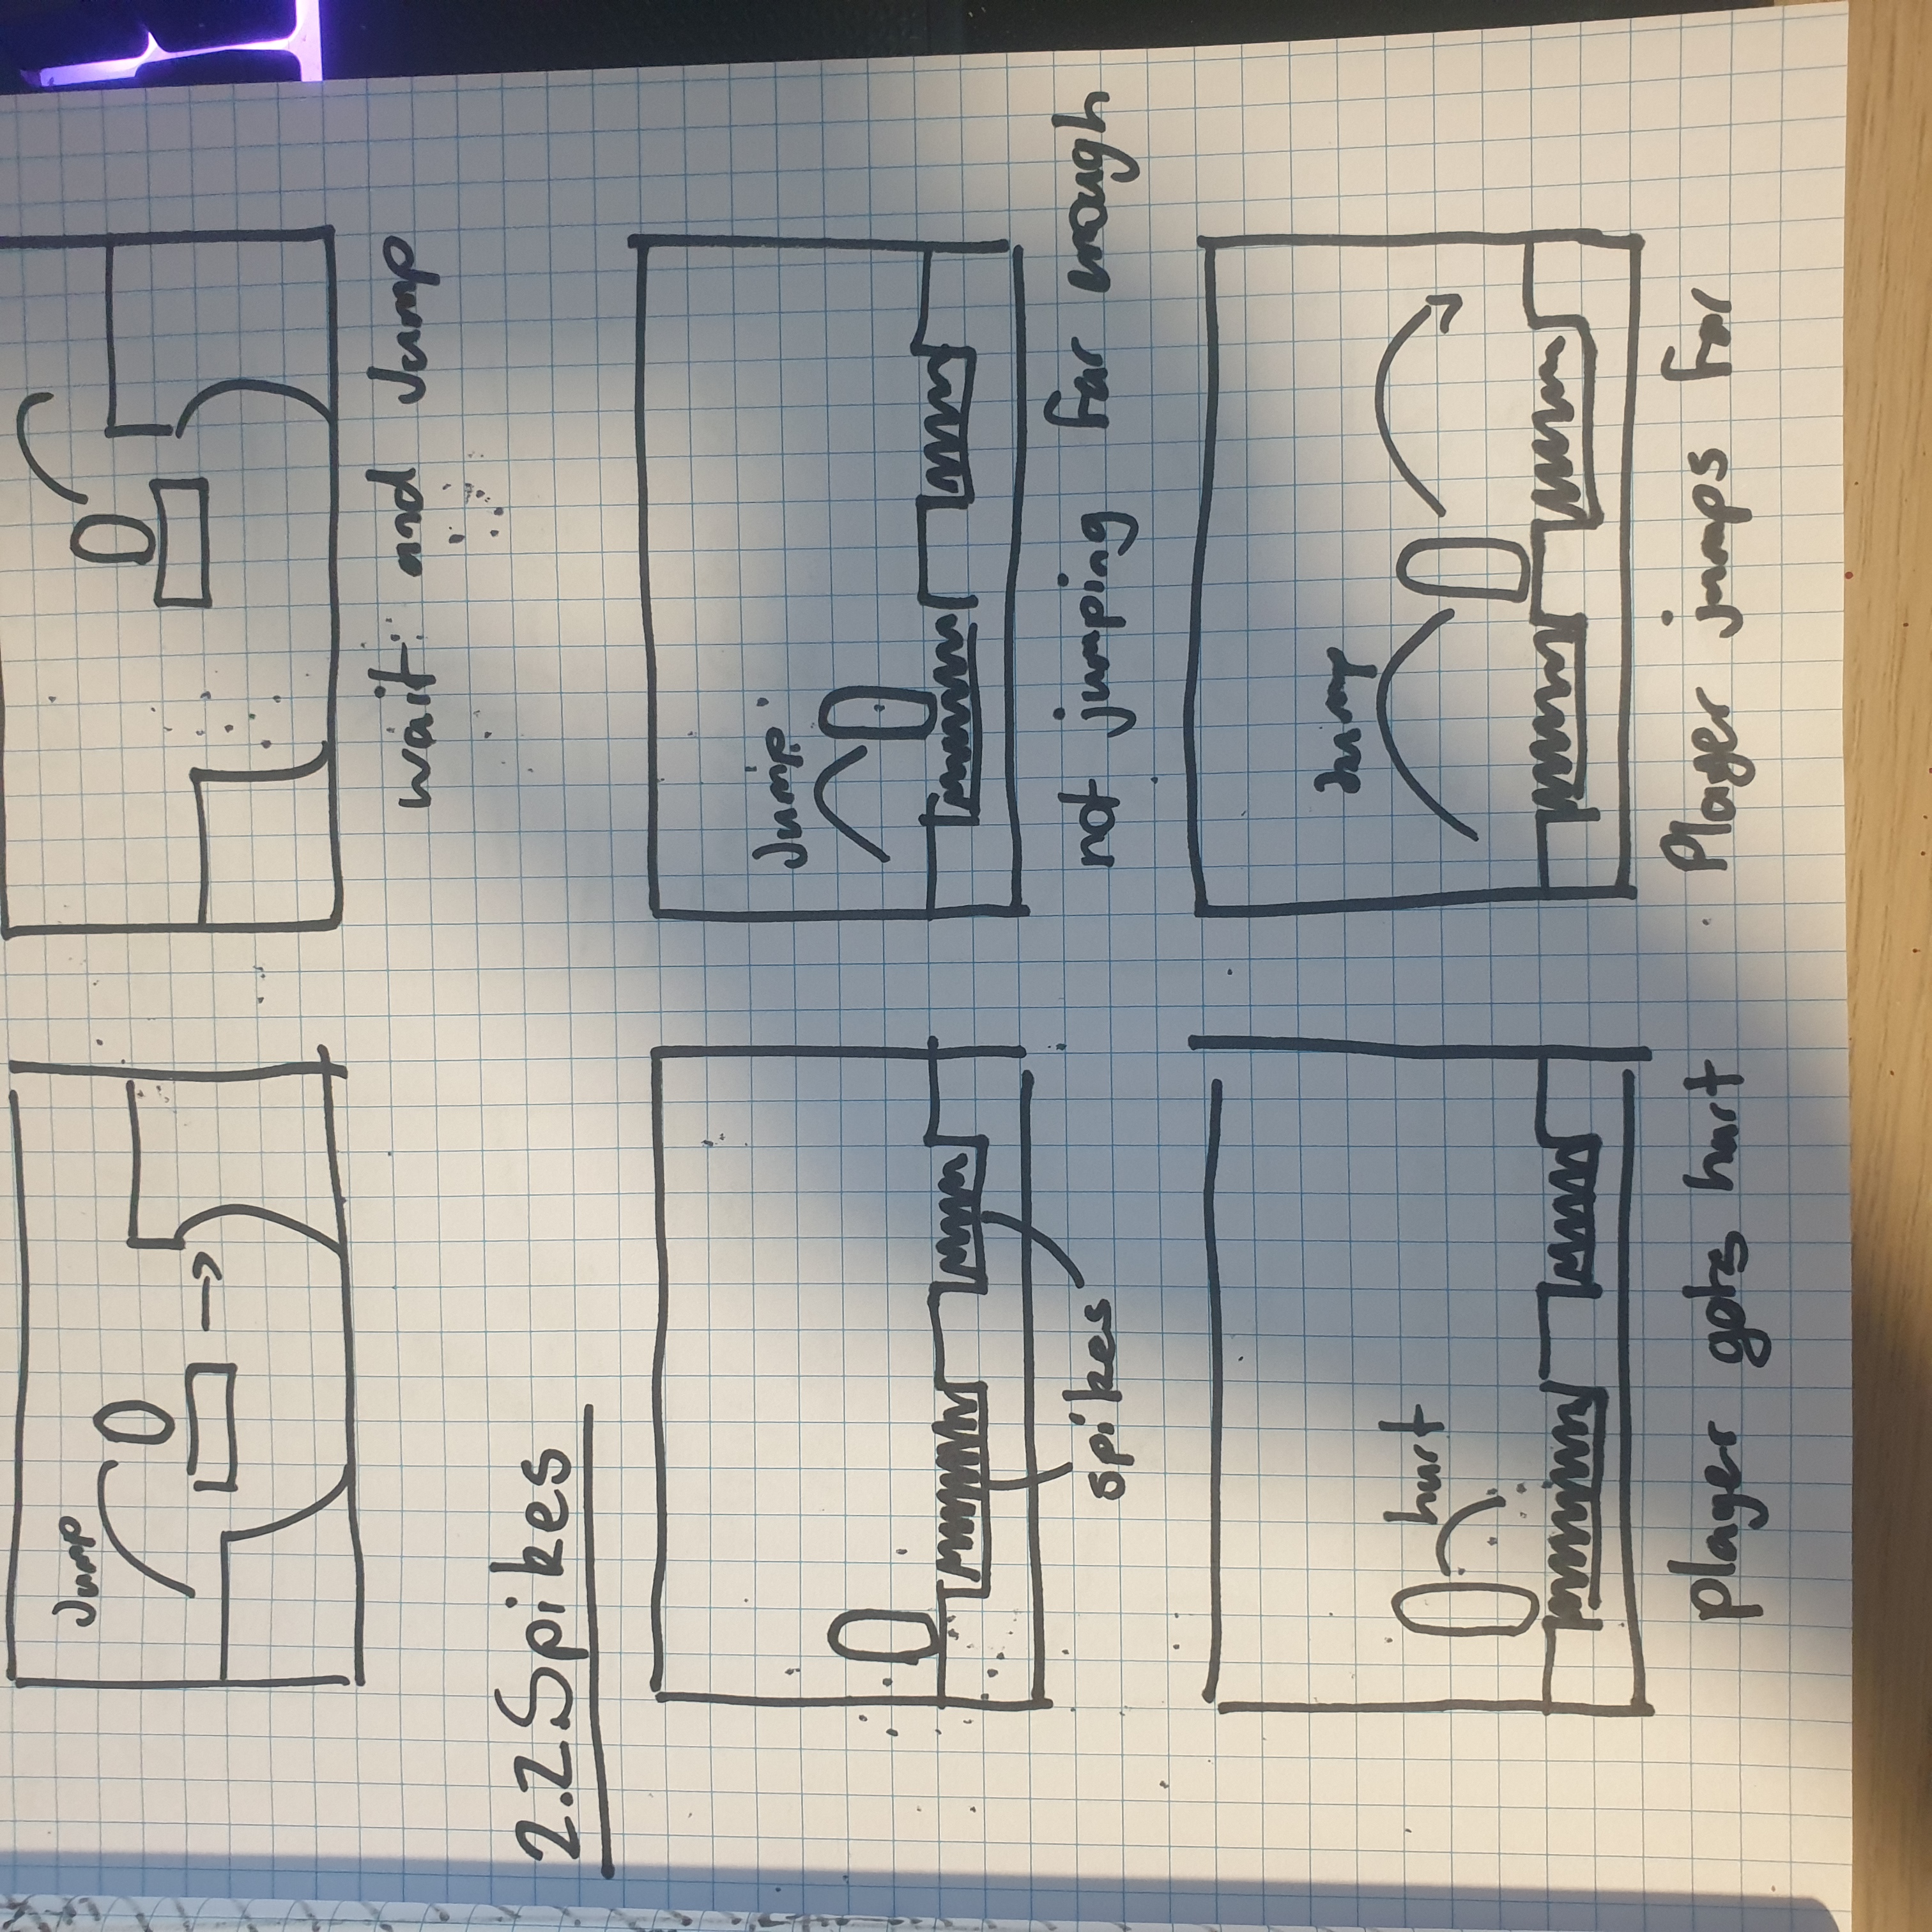 Jump
wait and Jump
2.2 Spikes
Jump
spikes
not jumping far enough
hurt
Jump
player gets hurt
Player jumps far